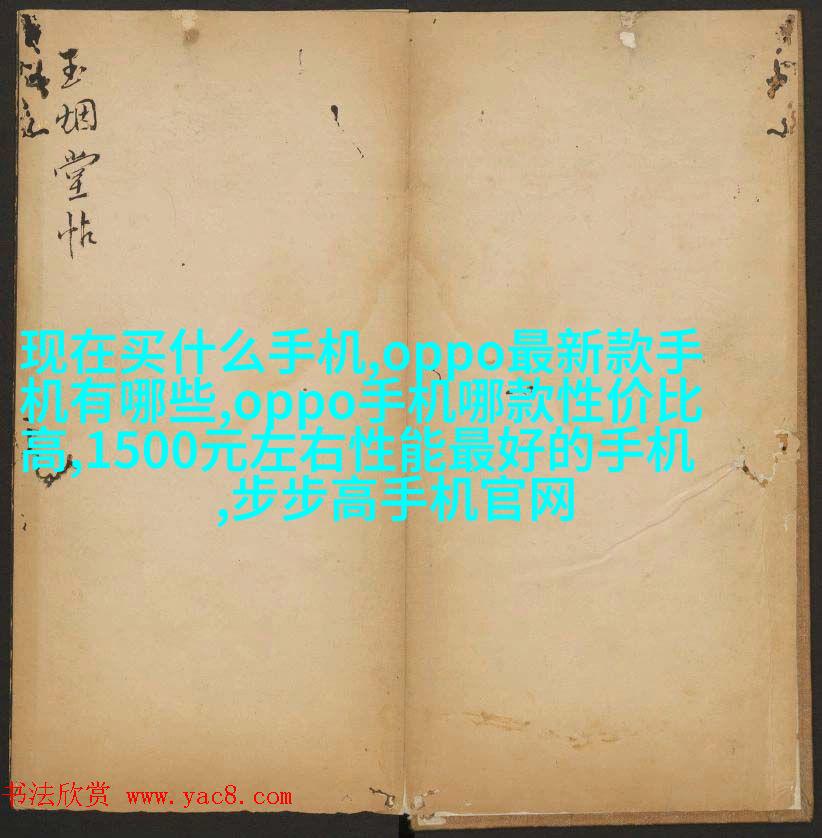 玉烟堂帖
现在买什么手机,oppo最新款手
机有哪些,oppo手机哪款性价比
高,1500元左右性能最好的手机
,步步高手机官网
书法欣赏 www.yac8.com